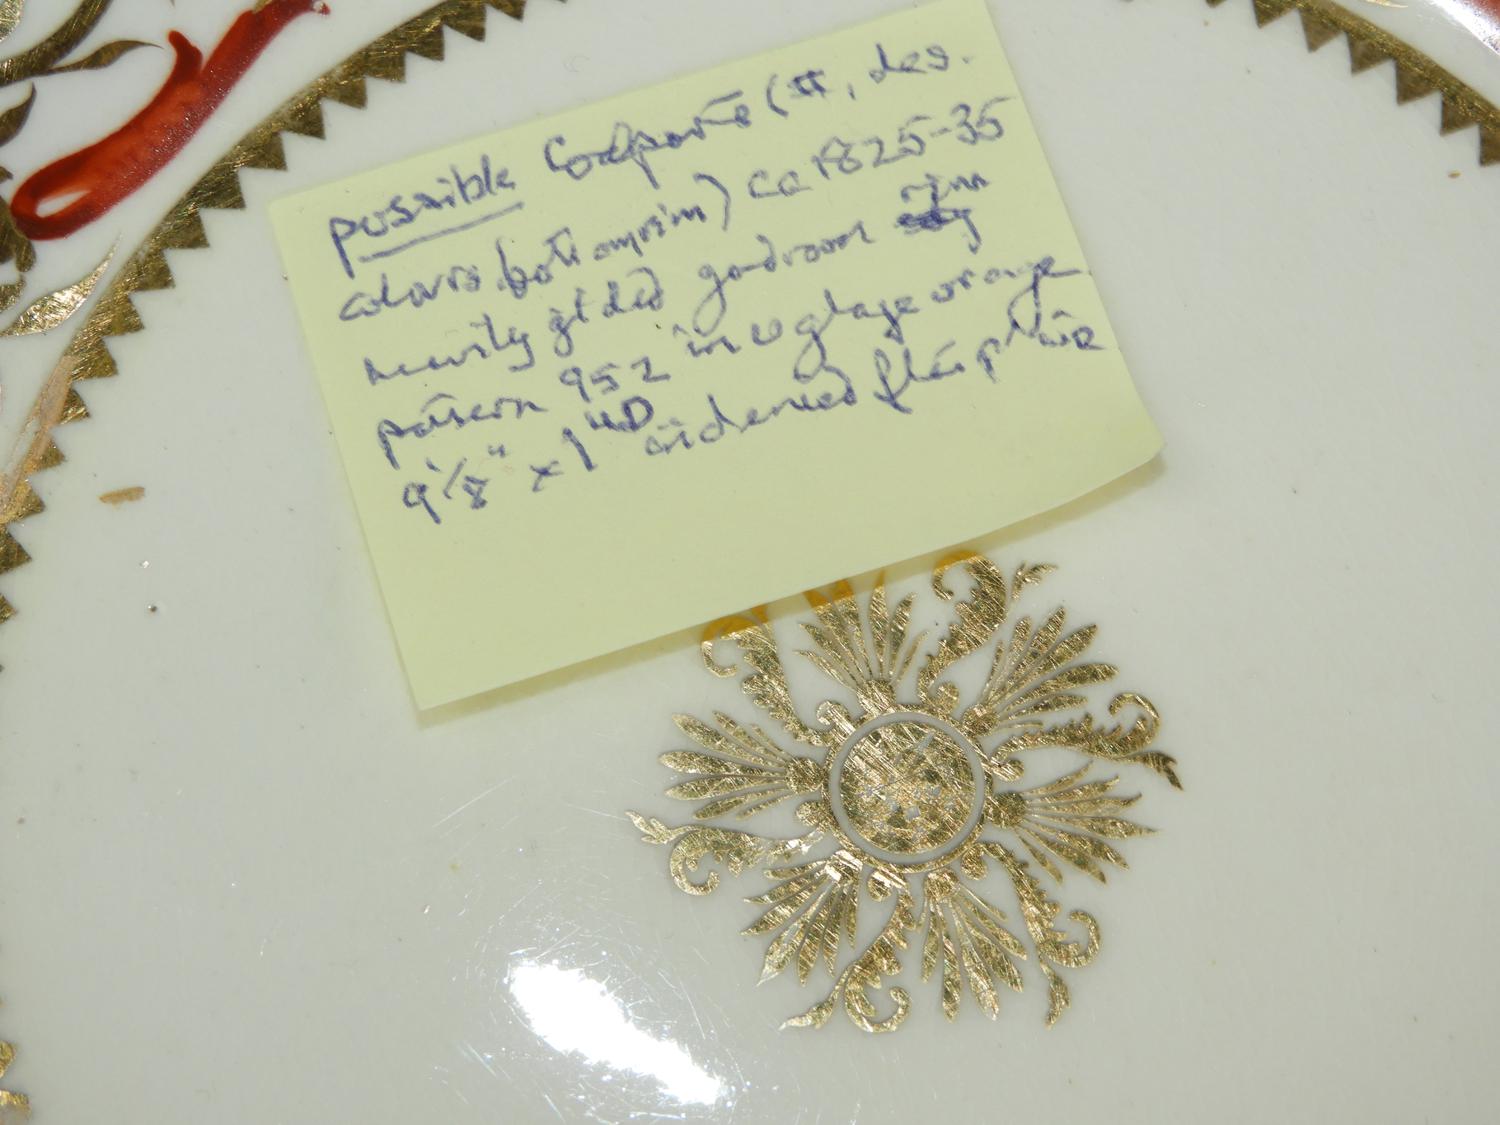 possible Coalporte (#, des.
colours, bottom rim) ca 1825-35
heavily gilded gadroon rim
pattern 952 in u glaze orange
9 1/8" x 1" D indented flat plate